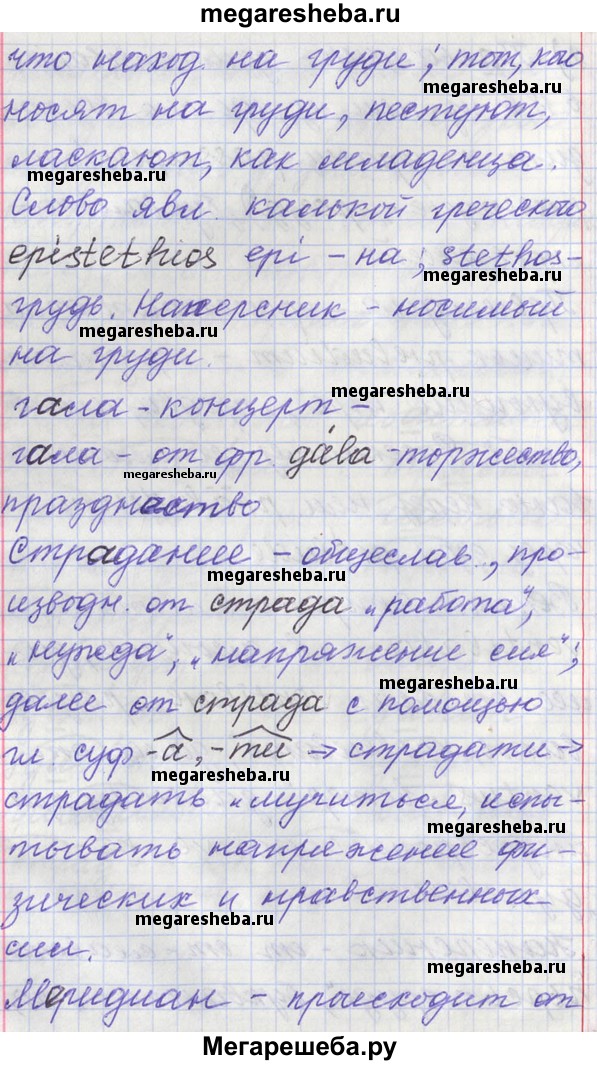 megaresheba.ru
что наход. на груди; тот, кого
носят на груди, пестуют,
ласкают, как младенца.
megaresheba.ru
Слово явл. калькой греческого
epistethios epi - на; stethos-
megaresheba.ru
грудь. Наперсник - носимый
megaresheba.ru
на груди.
megaresheba.ru
гала - концерт -
гала - от фр. gála - торжество,
megaresheba.ru
празднество
Страдание - общеслав., про-
megaresheba.ru
изводн. от страда „работа",
„нужда", „напряжение сил";
megaresheba.ru
далее от страда с помощью
гл. суф -а, -ти → страдати →
megaresheba.ru
страдать „мучиться, испы-
megaresheba.ru
тывать напряжение фи-
зических и нравственных
megaresheba.ru
сил.
megaresheba.ru
Меридиан - происходит от
Мегарешеба.ру